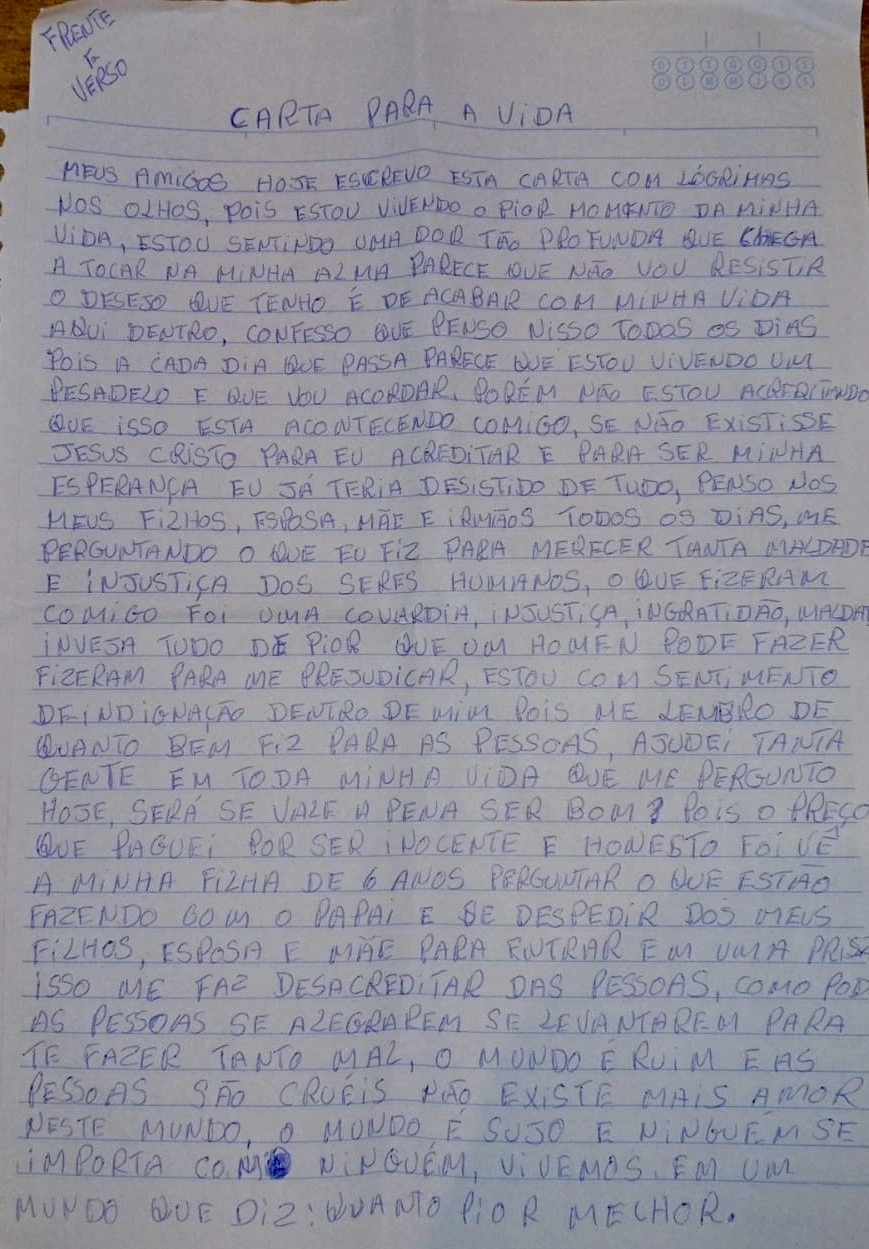 FRENTE
E
VERSO
D S T Q Q S S
D L M M J V S
CARTA PARA A VIDA
MEUS AMIGOS HOJE ESCREVO ESTA CARTA COM LÓGRIMAS
NOS OLHOS, POIS ESTOU VIVENDO O PIOR MOMENTO DA MINHA
VIDA, ESTOU SENTINDO UMA DOR TÃO PROFUNDA QUE CHEGA
A TOCAR NA MINHA ALMA PARECE QUE NÃO VOU RESISTIR
O DESEJO QUE TENHO É DE ACABAR COM MINHA VIDA
AQUI DENTRO, CONFESSO QUE PENSO NISSO TODOS OS DIAS
POIS A CADA DIA QUE PASSA PARECE QUE ESTOU VIVENDO UM
PESADELO E QUE VOU ACORDAR, PORÉM NÃO ESTOU
QUE ISSO ESTA ACONTECENDO COMIGO, SE NÃO EXISTISSE
JESUS CRISTO PARA EU ACREDITAR E PARA SER MINHA
ESPERANÇA EU JÁ TERIA DESISTIDO DE TUDO, PENSO NOS
MEUS FILHOS, ESPOSA, MÃE E IRMÃOS TODOS OS DIAS, ME
PERGUNTANDO O QUE EU FIZ PARA MERECER TANTA MALDADE
E INJUSTIÇA DOS SERES HUMANOS, O QUE FIZERAM
COMIGO FOI UMA COVARDIA, INJUSTIÇA, INGRATIDÃO, MALDA
INVEJA TUDO DE PIOR QUE UM HOMEN PODE FAZER
FIZERAM PARA ME PREJUDICAR, ESTOU COM SENTIMENTO
DE INDIGNAÇÃO DENTRO DE MIM POIS ME LEMBRO DE
QUANTO BEM FIZ PARA AS PESSOAS, AJUDEI TANTA
GENTE EM TODA MINHA VIDA QUE ME PERGUNTO
HOJE, SERÁ SE VALE A PENA SER BOM? POIS O PREÇO
QUE PAGUEI POR SER INOCENTE E HONESTO FOI VÊ
A MINHA FILHA DE 6 ANOS PERGUNTAR O QUE ESTÃO
FAZENDO COM O PAPAI E SE DESPEDIR DOS MEUS
FILHOS, ESPOSA E MÃE PARA ENTRAR EM UMA PRISÃ
ISSO ME FAZ DESACREDITAR DAS PESSOAS, COMO POD
AS PESSOAS SE ALEGRAREM SE LEVANTAREM PARA
TE FAZER TANTO MAL, O MUNDO É RUIM E AS
PESSOAS SÃO CRUÉIS NÃO EXISTE MAIS AMOR
NESTE MUNDO, O MUNDO É SUJO E NINGUÉM SE
IMPORTA COM NINGUÉM, VIVEMOS EM UM
MUNDO QUE DIZ: QUANTO PIOR MELHOR.